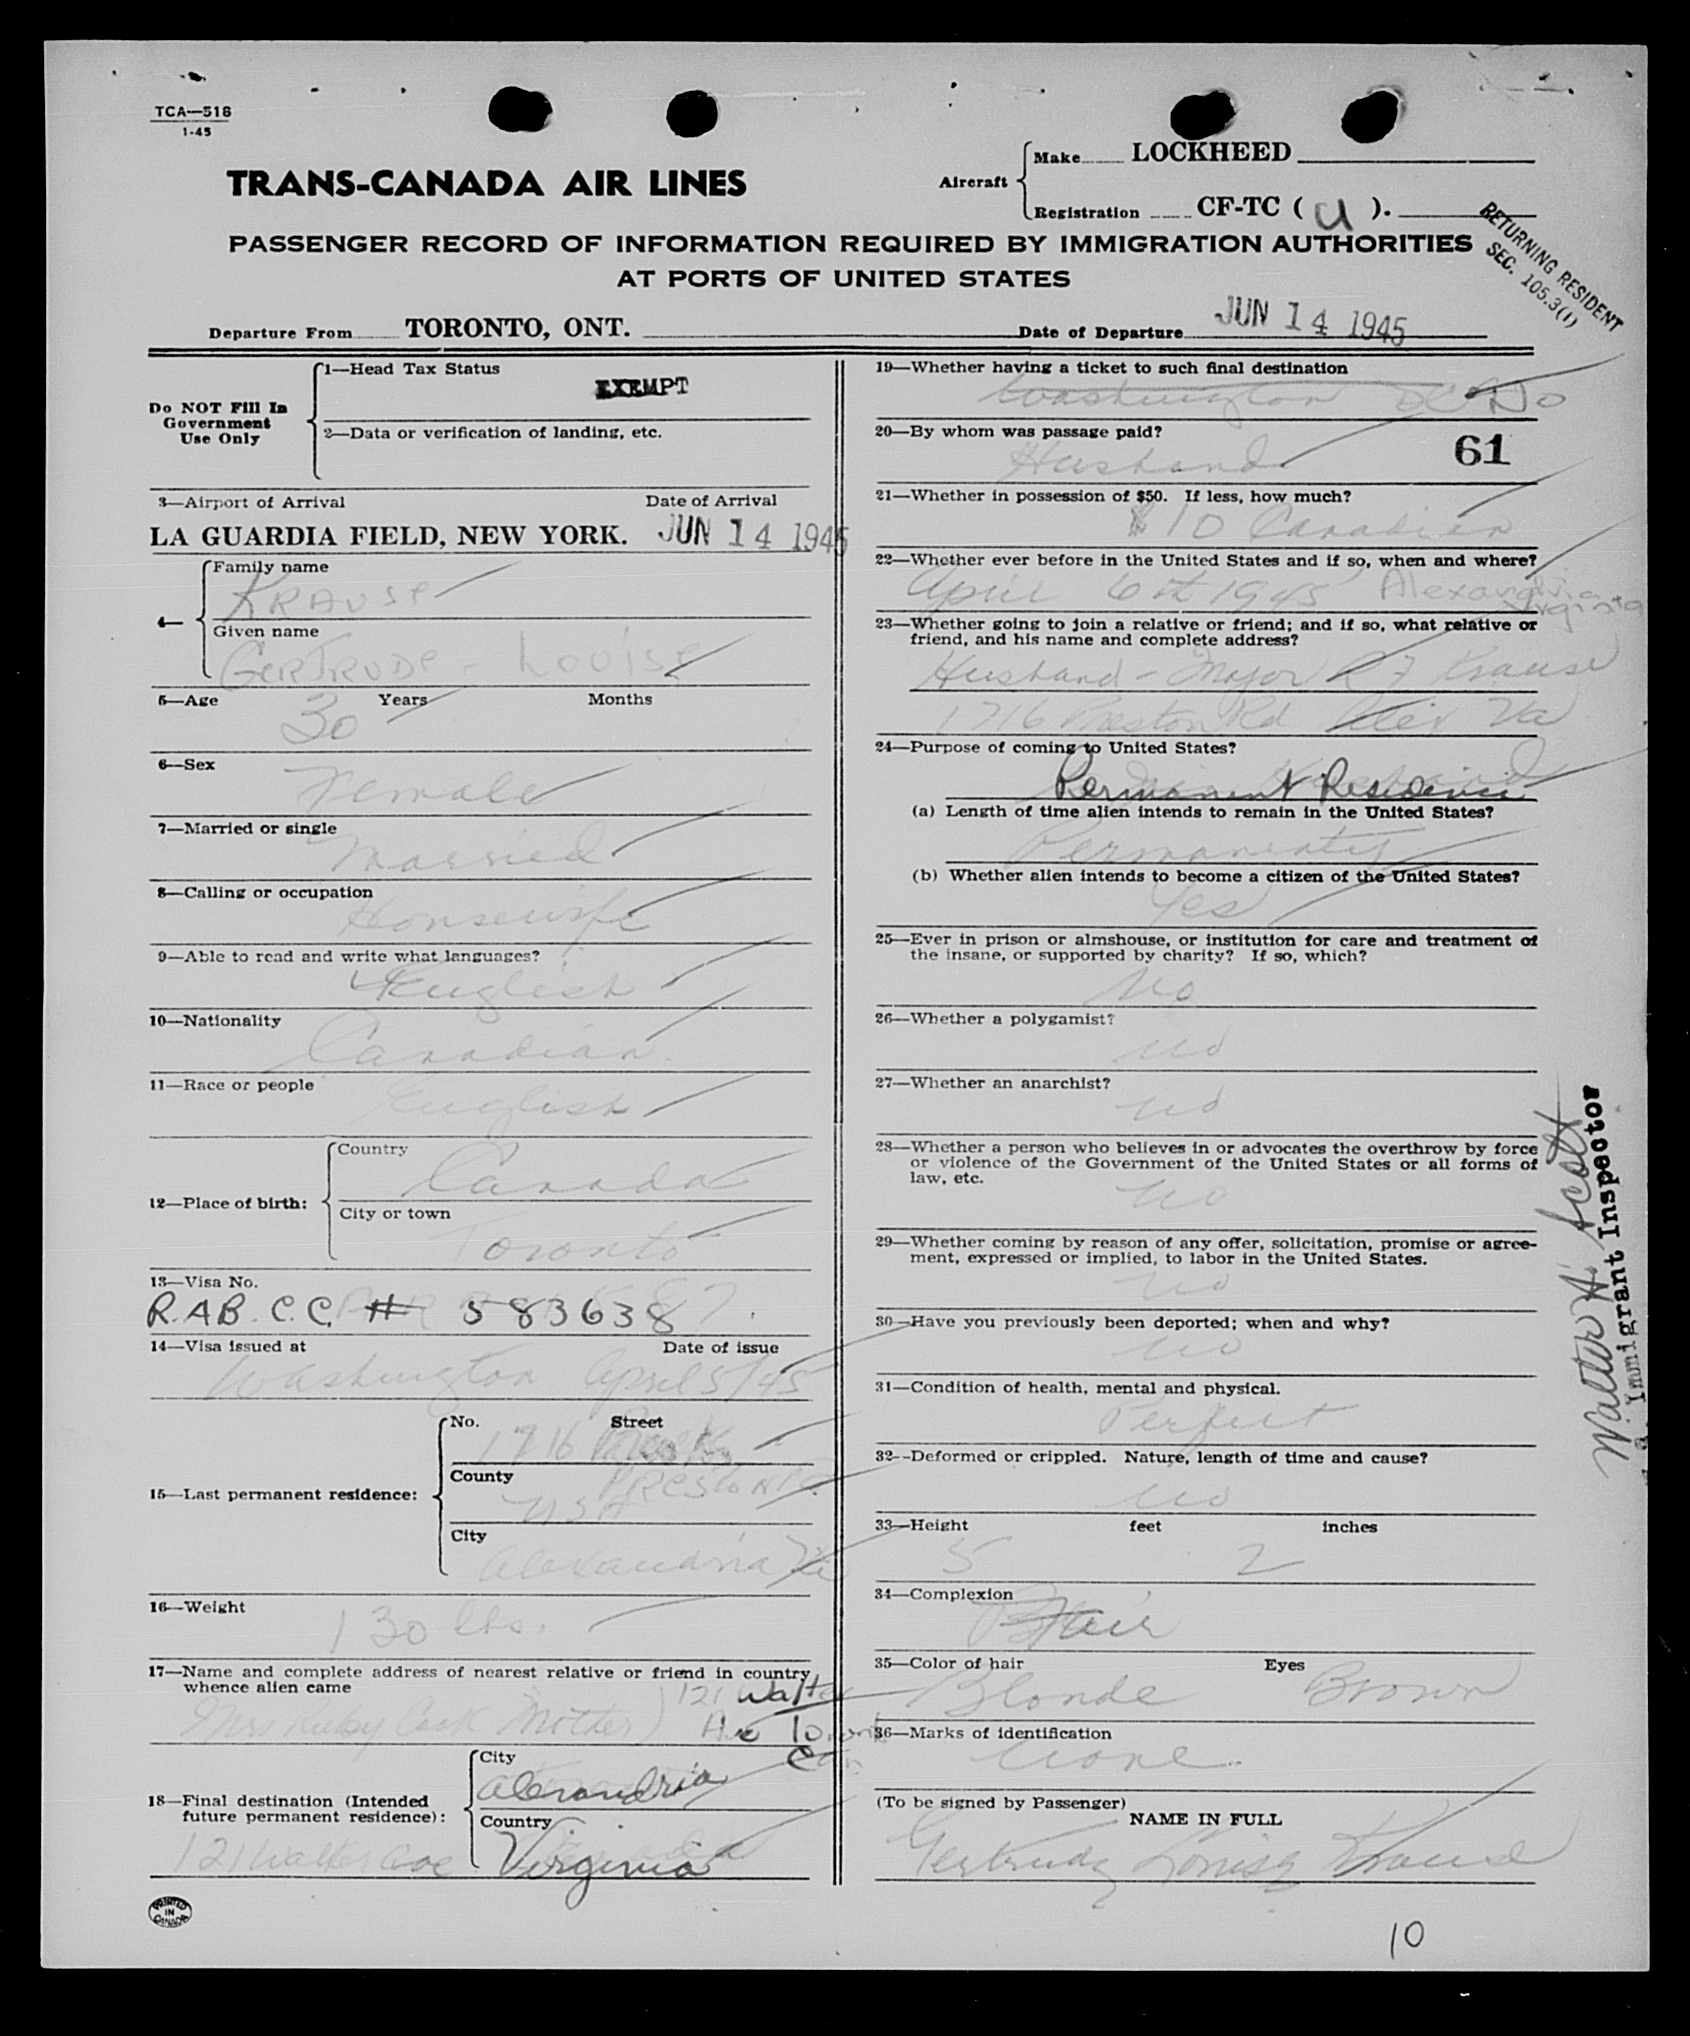 TCA—518
1-45
TRANS-CANADA AIR LINES
Aircraft
Make LOCKHEED
Registration CF-TC ( U ).
PASSENGER RECORD OF INFORMATION REQUIRED BY IMMIGRATION AUTHORITIES
AT PORTS OF UNITED STATES
RETURNING RESIDENT
SEC. 105.3(1)
Departure From TORONTO, ONT. Date of Departure JUN 14 1945
Do NOT Fill In
Government
Use Only
1—Head Tax Status
EXEMPT
2—Data or verification of landing, etc.
3—Airport of Arrival Date of Arrival
LA GUARDIA FIELD, NEW YORK. JUN 14 1945
4—
Family name
KRAUSE
Given name
GERTRUDE - LOUISE
5—Age Years Months
30
6—Sex
Female
7—Married or single
Married
8—Calling or occupation
Housewife
9—Able to read and write what languages?
English
10—Nationality
Canadian
11—Race or people
English
12—Place of birth:
Country
Canada
City or town
Toronto
13—Visa No.
R.A.B. C.C. # 583638
14—Visa issued at Date of issue
Washington April 5/45
15—Last permanent residence:
No. Street
1716
County
Preston Rd.
USA
City
Alexandria Va
16—Weight
130 lbs.
17—Name and complete address of nearest relative or friend in country
whence alien came
Mrs Ruby Cook Mother) 121 Walter
Ave Toronto
Can
18—Final destination (Intended
future permanent residence):
121 Walter Ave
City
Alexandria
Country
Virginia
PRINTED
IN
CANADA
19—Whether having a ticket to such final destination
Washington DC No
20—By whom was passage paid?
Husband
61
21—Whether in possession of $50. If less, how much?
$10 Canadian
22—Whether ever before in the United States and if so, when and where?
April 6th 1945 Alexandria
Virginia
23—Whether going to join a relative or friend; and if so, what relative or
friend, and his name and complete address?
Husband - Major R F Krause
1716 Preston Rd Alex Va
24—Purpose of coming to United States?
Permanent Residence
(a) Length of time alien intends to remain in the United States?
Permanently
(b) Whether alien intends to become a citizen of the United States?
Yes
25—Ever in prison or almshouse, or institution for care and treatment of
the insane, or supported by charity? If so, which?
No
26—Whether a polygamist?
No
27—Whether an anarchist?
No
28—Whether a person who believes in or advocates the overthrow by force
or violence of the Government of the United States or all forms of
law, etc.
No
29—Whether coming by reason of any offer, solicitation, promise or agree-
ment, expressed or implied, to labor in the United States.
No
30—Have you previously been deported; when and why?
No
31—Condition of health, mental and physical.
Perfect
32—Deformed or crippled. Nature, length of time and cause?
No
33—Height feet inches
5 2
34—Complexion
Fair
35—Color of hair Eyes
Blonde Brown
36—Marks of identification
None
(To be signed by Passenger)
NAME IN FULL
Gertrude Louise Krause
Walter H. Scott
Immigrant Inspector
10